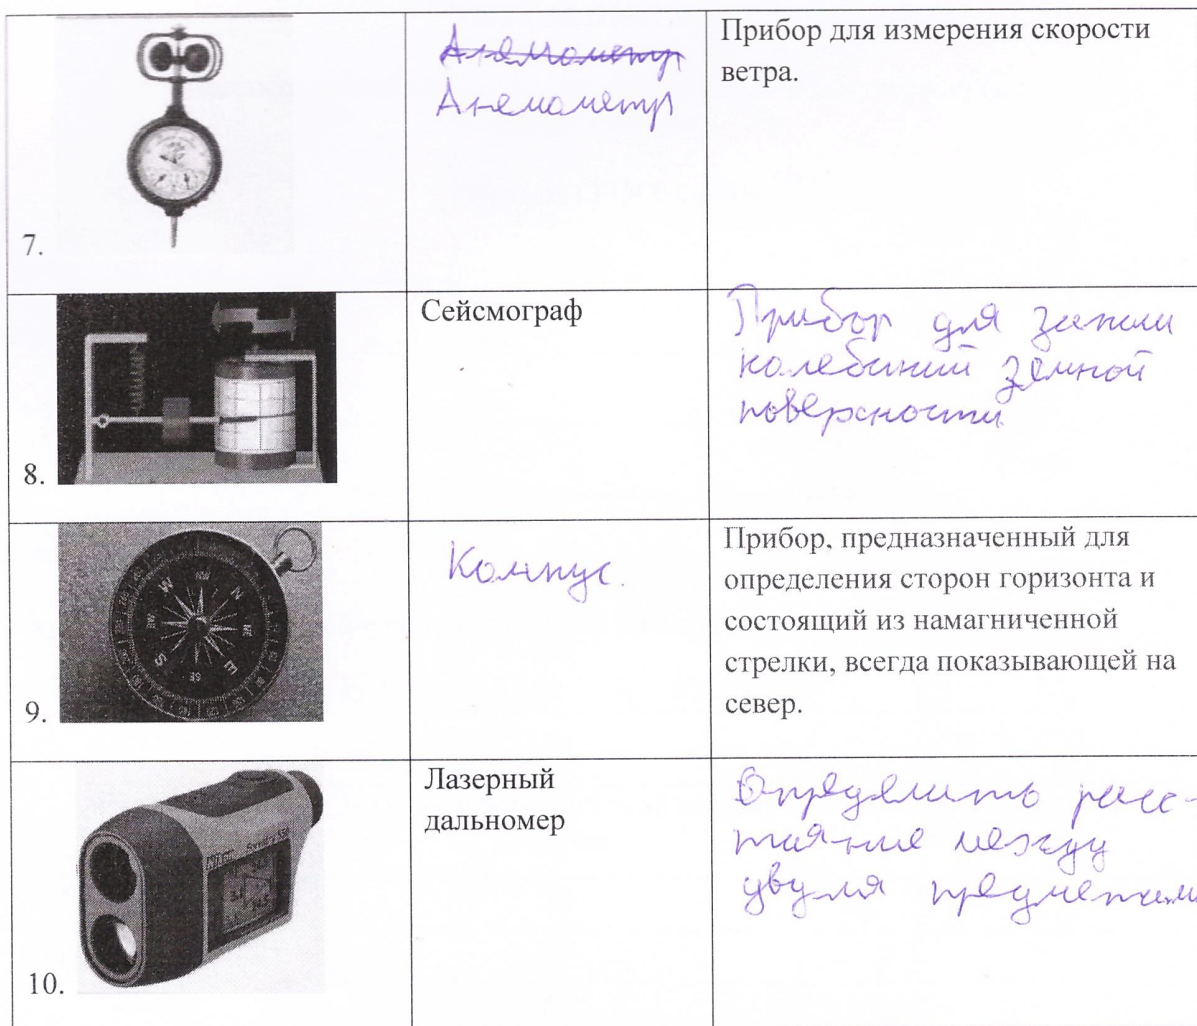 Анемометр
Анемометр
Прибор для измерения скорости
ветра.
7.
Сейсмограф
Прибор для записи
колебаний земной
поверхности
8.
Компус.
Прибор, предназначенный для
определения сторон горизонта и
состоящий из намагниченной
стрелки, всегда показывающей на
север.
W NW N NE E SE S SW
9.
Лазерный
дальномер
Определить расс-
таяние между
двумя предметами
10.